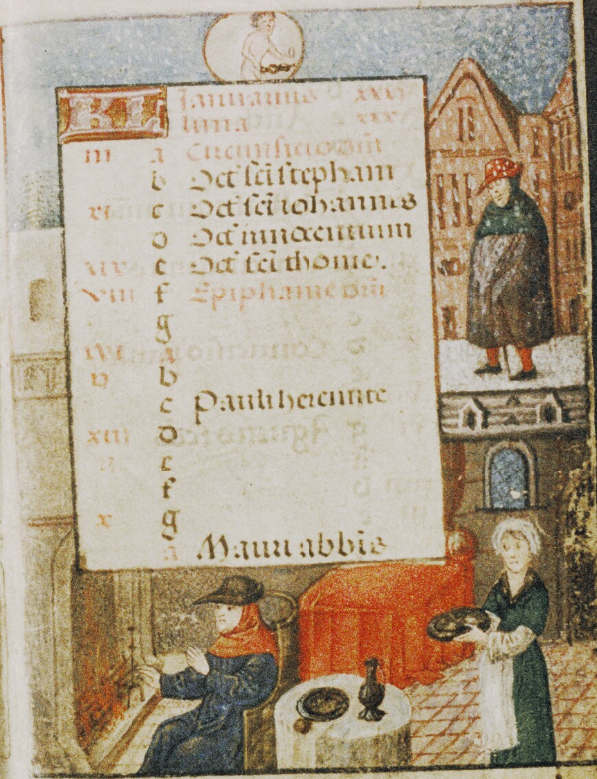 KL Januarius xxxi
luna xxx
iii a Circunsicio dni
b Oct sci stephani
xi c Oct sci iohannis
d Oct innocentium
xix e Oct sci thome.
viii f Epiphanie dni
g
xvi a
v b
c Pauli heremite
xiii d
ii e
f
x g
a Mauri abbis